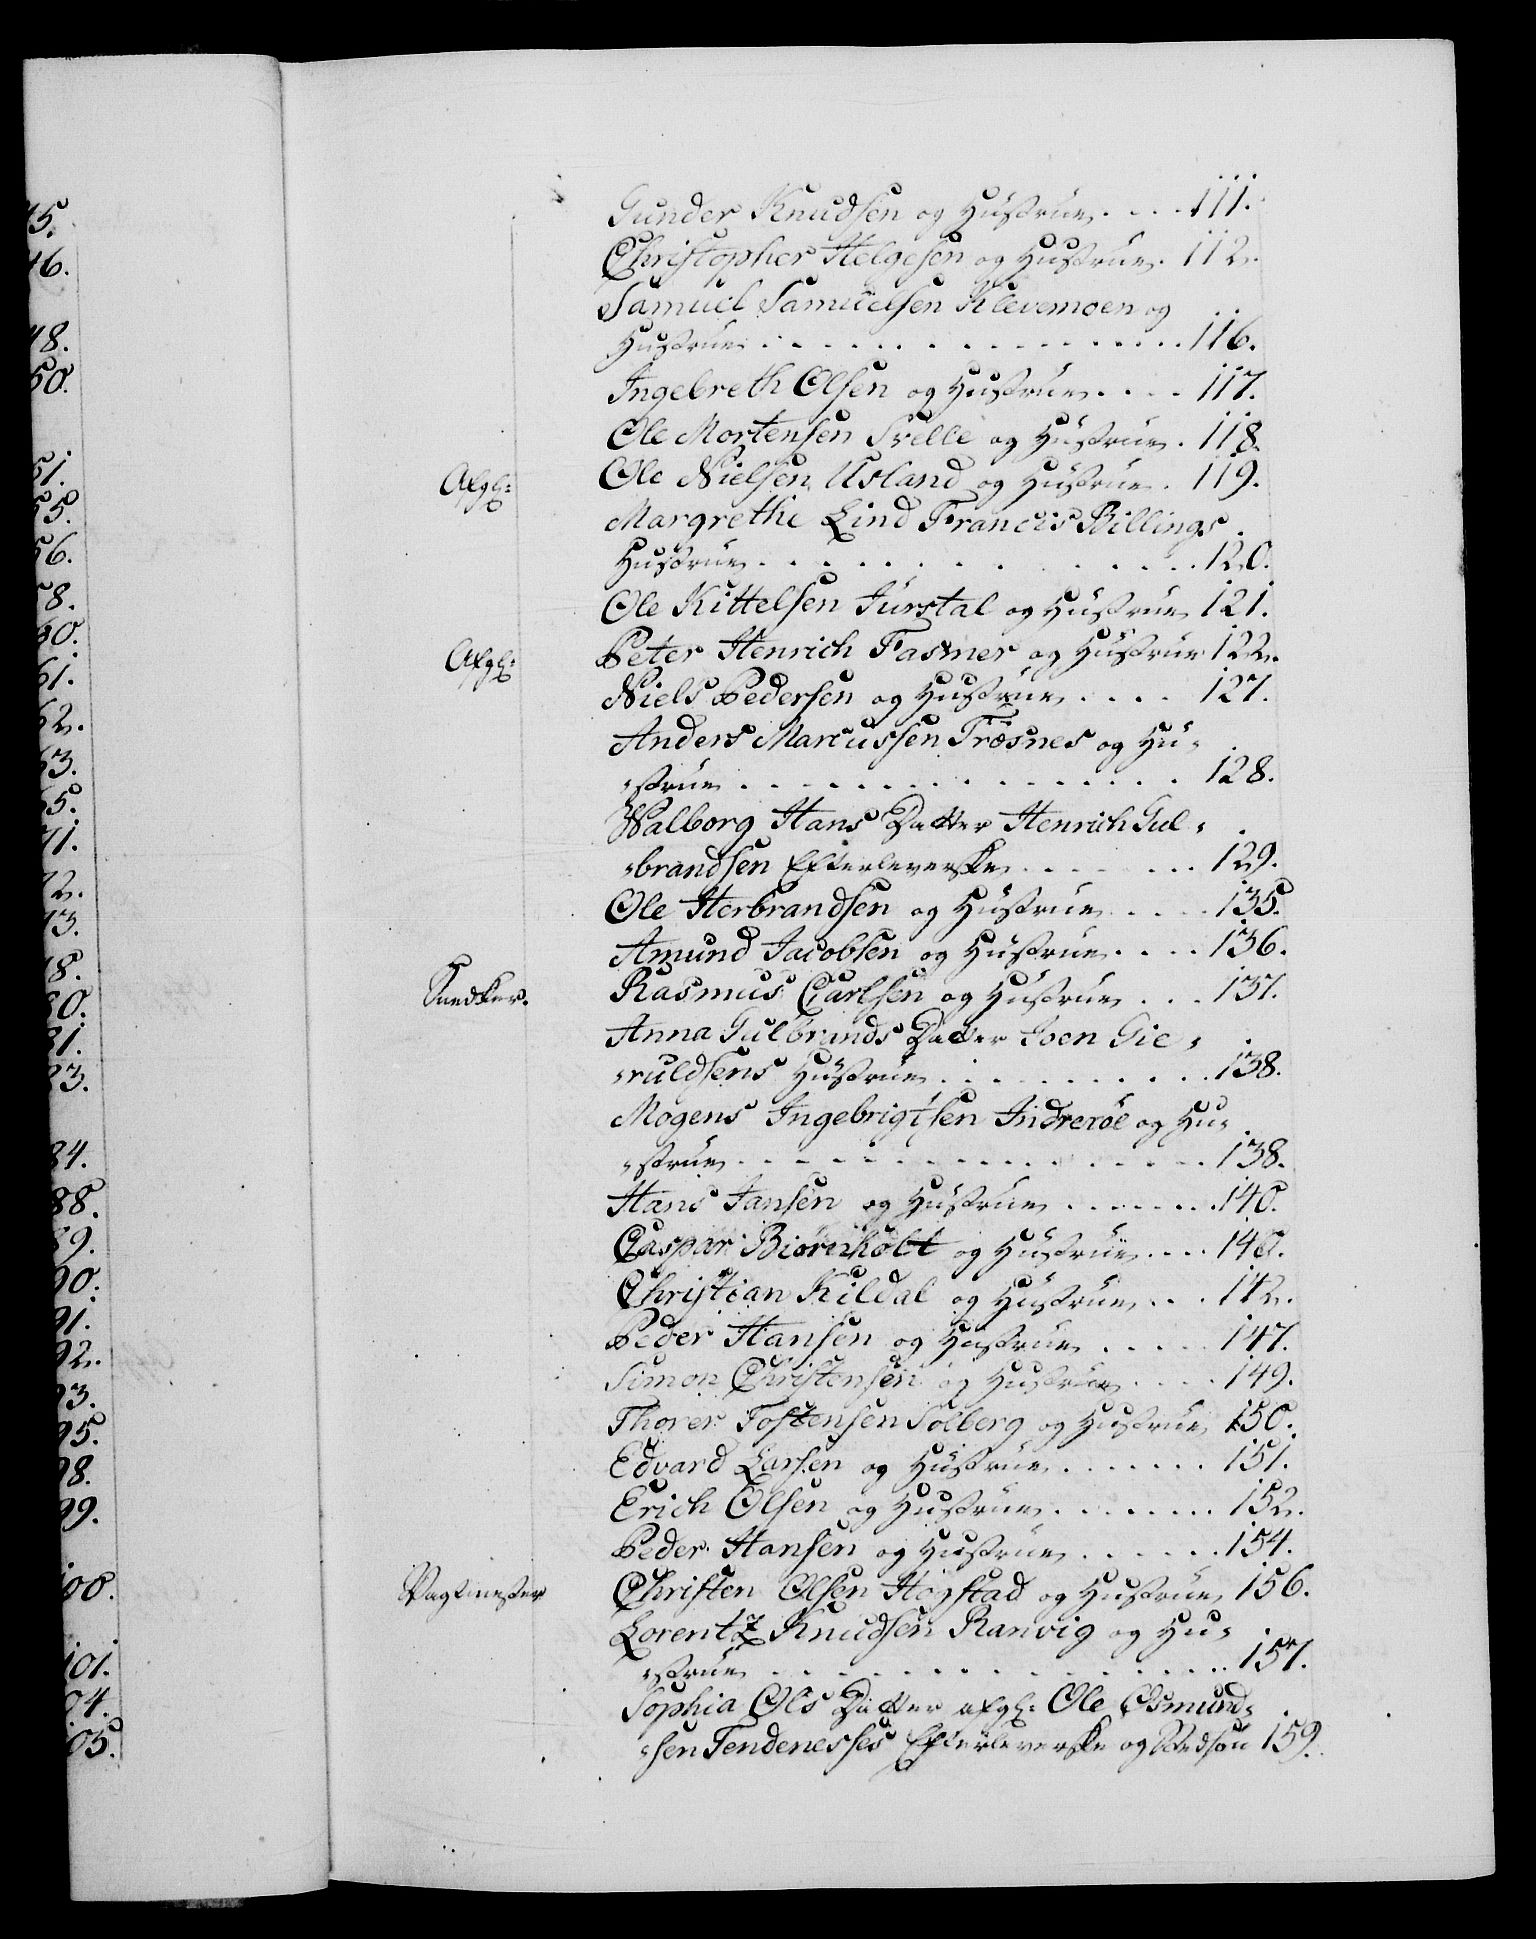 Gunder Knudsen og Hustrue .... 111.
Christopher Helgesen og Hustrue. 112.
Samuel Samuelsen Klevemoen og
Hustrue ................ 116.
Ingebreth Olsen og Hustrue .... 117.
Ole Mortensen Svelle og Hustrue . 118.
Afgl: Ole Nielsen Usland og Hustrue . 119.
Margrethe Lind Francis Billings
Hustrue ............ 120.
Ole Kittelsen Jurstal og Hustrue 121.
Afgl: Peter Henrich Fasmer og Hustrue 122.
Niels Pedersen og Hustrue .... 127.
Anders Marcussen Tröesnes og Hu-
-strue ................ 128.
Walborg Hans Datter Henrich Gul-
-brandsen Efterleverske ...... 129.
Ole Herbrandsen og Hustrue .... 135.
Amund Jacobsen og Hustrue .... 136.
Snedker. Rasmus Carlsen og Hustrue ... 137.
Anna Gulbrands Datter Joen Gie-
-ruldsens Hustrue .......... 138.
Mogens Ingebrigtsen Indreröe og Hu-
-strue ................ 138.
Hans Jansen og Hustrue ....... 140.
Caspar Biörnholt og Hustrue .... 140.
Christian Kildal og Hustrue ... 142.
Peder Hansen og Hustrue ..... 147.
Simon Christensen og Hustrue .... 149.
Thorer Tostensen Solberg og Hustrue 150.
Edvard Larsen og Hustrue ....... 151.
Erich Olsen og Hustrue ........ 152.
Peder Hansen og Hustrue ...... 154.
Vagtmester Christen Olsen Högstad og Hustrue 156.
Lorentz Knudsen Ranvig og Hu-
-strue ................ 157.
Sophia Ols Datter afgl: Ole Osmund-
-sen Tendenesses Efterleverske og Stedsön 159.
45.
46.
48.
50.
51.
55.
56.
58.
60.
61.
62.
63.
65.
71.
72.
73.
78.
80.
81.
83.
84.
88.
89.
90.
91.
92.
93.
95.
98.
99.
100.
101.
104.
105.